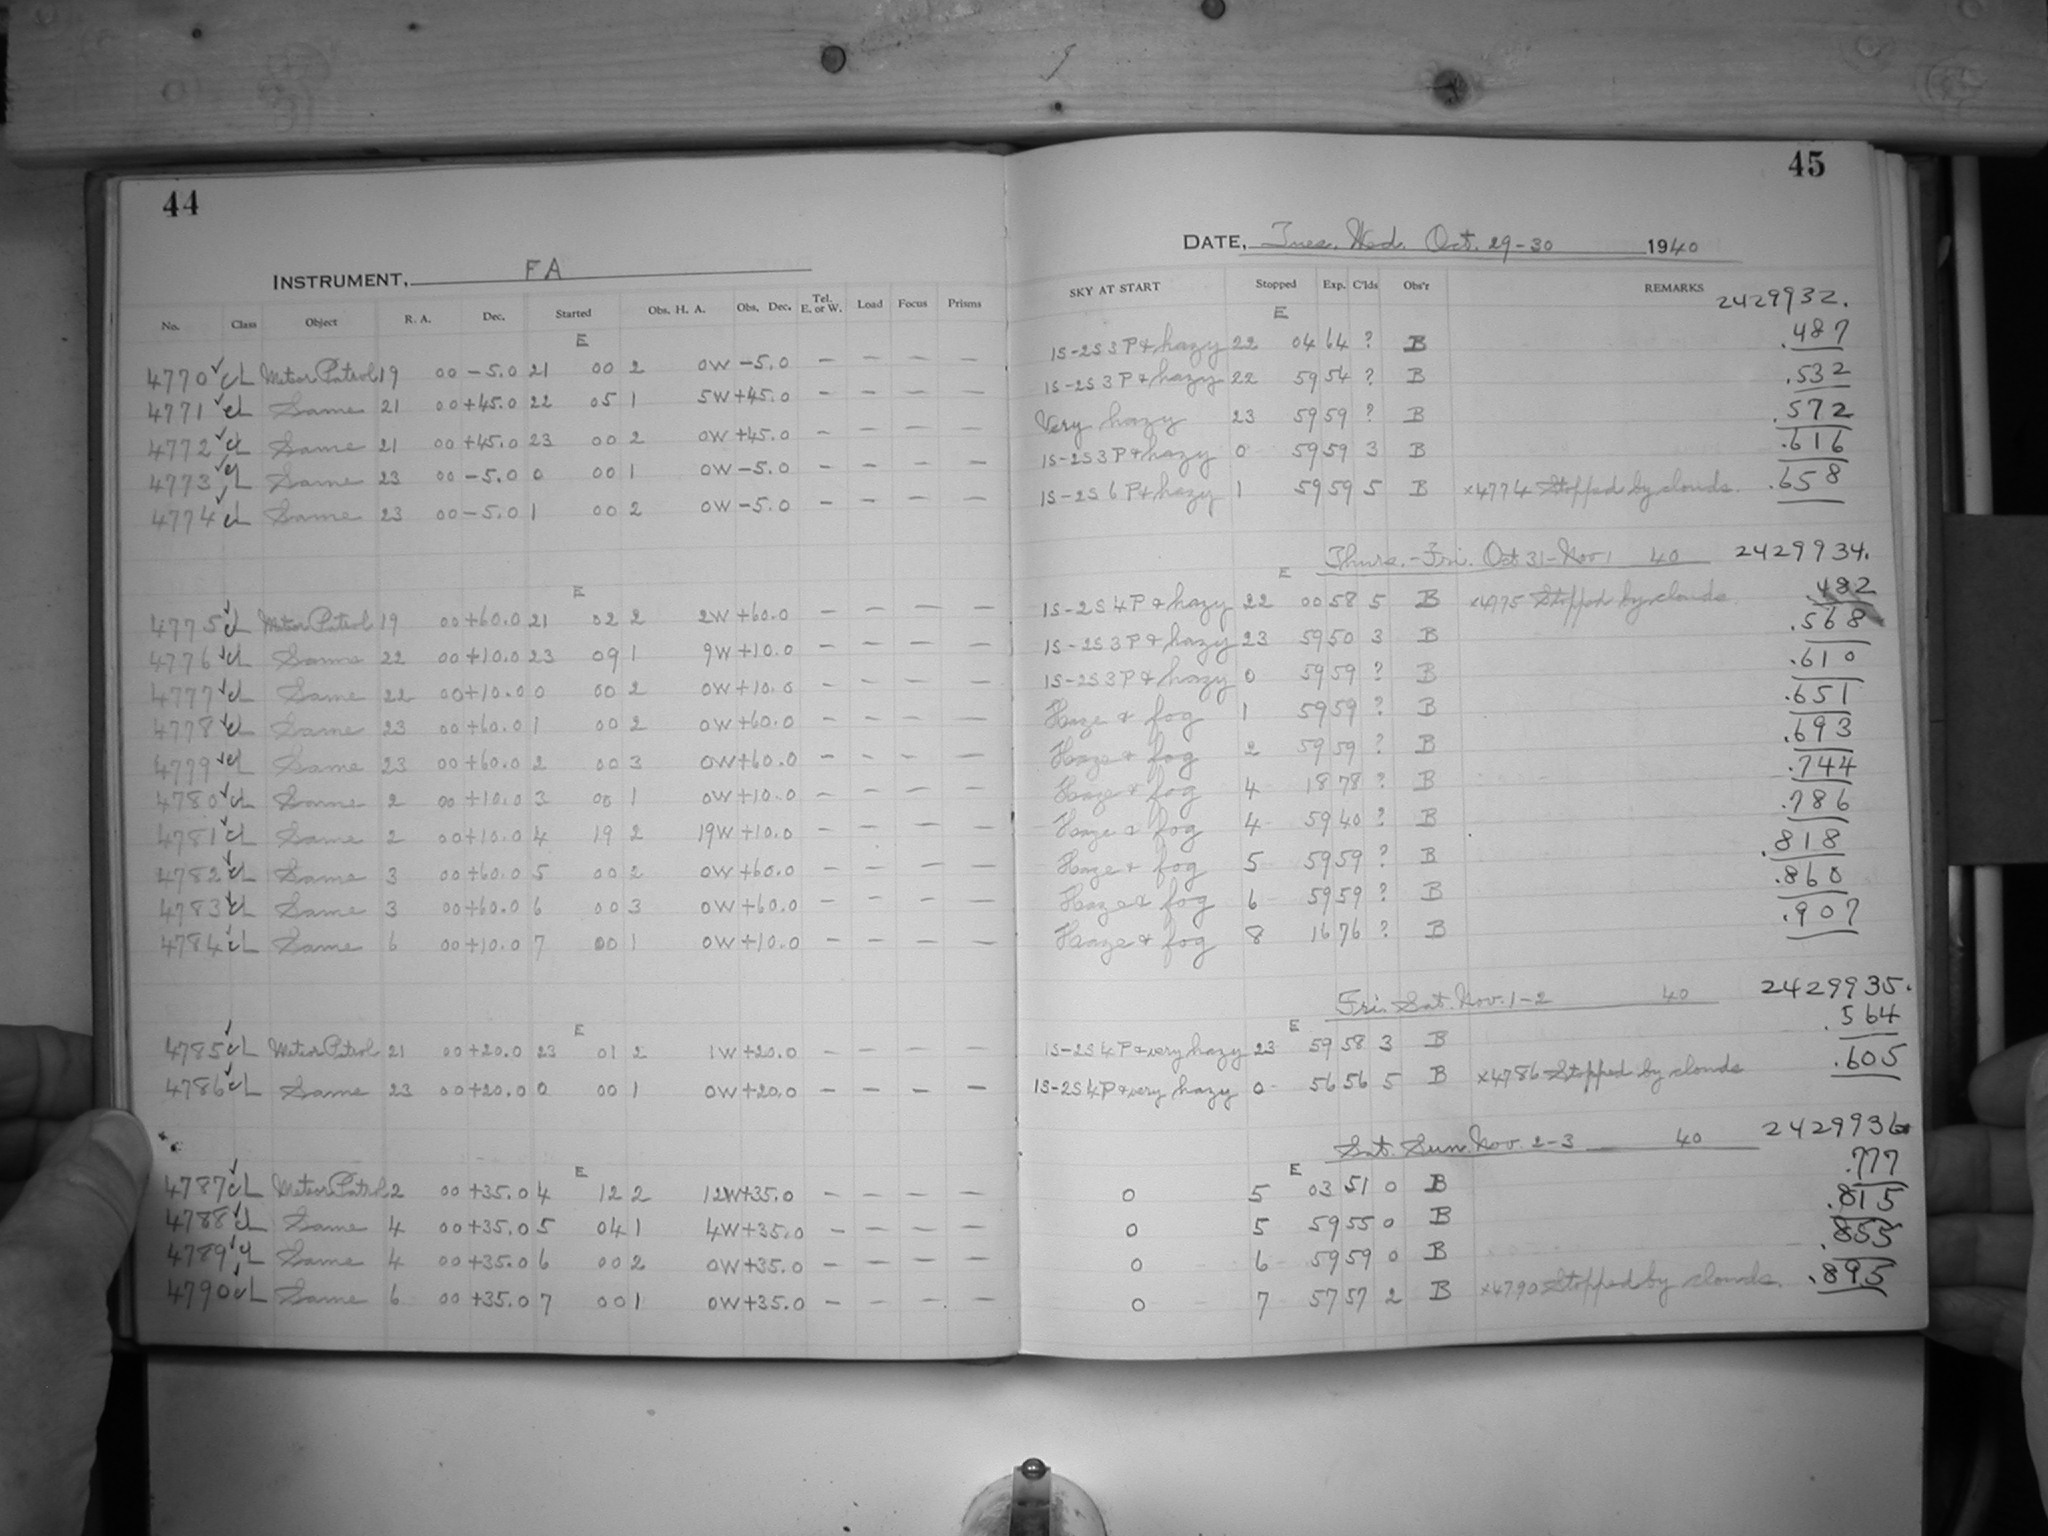 44
INSTRUMENT, FA
No. Class Object R. A. Dec. Started Obs. H. A. Obs. Dec. Tel. E. or W. Load Focus Prisms
E
4770 ✓ cL Meteor Patrol 19 00 -5.0 21 00 2 0W -5.0 - - - -
4771 ✓ cL Same 21 00 +45.0 22 05 1 5W +45.0 - - - -
4772 ✓ cL Same 21 00 +45.0 23 00 2 0W +45.0 - - - -
4773 ✓ cL Same 23 00 -5.0 0 00 1 0W -5.0 - - - -
4774 ✓ cL Same 23 00 -5.0 1 00 2 0W -5.0 - - - -
E
4775 ✓ cL Meteor Patrol 19 00 +60.0 21 02 2 2W +60.0 - - - -
4776 ✓ cL Same 22 00 +10.0 23 09 1 9W +10.0 - - - -
4777 ✓ cL Same 22 00 +10.0 0 00 2 0W +10.0 - - - -
4778 ✓ cL Same 23 00 +60.0 1 00 2 0W +60.0 - - - -
4779 ✓ cL Same 23 00 +60.0 2 00 3 0W +60.0 - - - -
4780 ✓ cL Same 2 00 +10.0 3 00 1 0W +10.0 - - - -
4781 ✓ cL Same 2 00 +10.0 4 19 2 19W +10.0 - - - -
4782 ✓ cL Same 3 00 +60.0 5 00 2 0W +60.0 - - - -
4783 ✓ cL Same 3 00 +60.0 6 00 3 0W +60.0 - - - -
4784 ✓ cL Same 6 00 +10.0 7 00 1 0W +10.0 - - - -
E
4785 ✓ cL Meteor Patrol 21 00 +20.0 23 01 2 1W +20.0 - - - -
4786 ✓ cL Same 23 00 +20.0 0 00 1 0W +20.0 - - - -
E
4787 ✓ cL Meteor Patrol 2 00 +35.0 4 12 2 12W +35.0 - - - -
4788 ✓ cL Same 4 00 +35.0 5 04 1 4W +35.0 - - - -
4789 ✓ cL Same 4 00 +35.0 6 00 2 0W +35.0 - - - -
4790 ✓ cL Same 6 00 +35.0 7 00 1 0W +35.0 - - - -
45
DATE, Tues. Wed. Oct. 29-30 1940
SKY AT START Stopped Exp. C'lds Obs'r REMARKS
2429932.
E
1S-2S 3P + hazy 22 04 64 ? B .487
1S-2S 3P + hazy 22 59 54 ? B .532
Very hazy 23 59 59 ? B .572
1S-2S 3P + hazy 0 59 59 3 B .616
1S-2S 6P + hazy 1 59 59 5 B x4774 Stopped by clouds. .658
Thurs.-Fri. Oct 31-Nov 1 40 2429934.
E
1S-2S 4P + hazy 22 00 58 5 B x4775 Stopped by clouds. .482
1S-2S 3P + hazy 23 59 50 3 B .568
1S-2S 3P + hazy 0 59 59 ? B .610
Haze + fog 1 59 59 ? B .651
Haze + fog 2 59 59 ? B .693
Haze + fog 4 18 78 ? B .744
Haze + fog 4 59 40 ? B .786
Haze + fog 5 59 59 ? B .818
Haze + fog 6 59 59 ? B .860
Haze + fog 8 16 76 ? B .907
Fri. Sat. Nov. 1-2 40 2429935.
E
1S-2S 4P + very hazy 23 59 58 3 B .564
1S-2S 4P + very hazy 0 56 56 5 B x4786 Stopped by clouds .605
Sat. Sun. Nov. 2-3 40 2429936.
E
0 5 03 51 0 B .777
0 5 59 55 0 B .815
0 6 59 59 0 B .855
0 7 57 57 2 B x4790 Stopped by clouds. .895